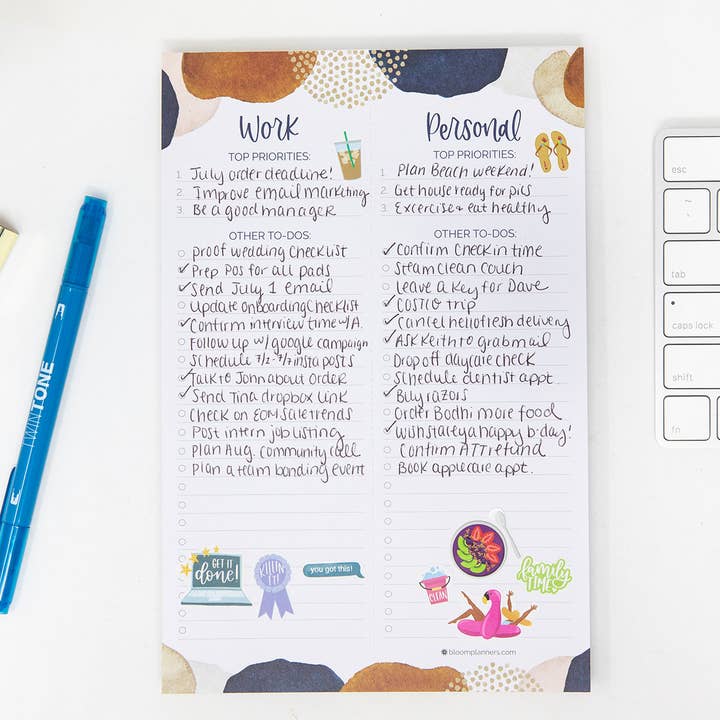 Work
TOP PRIORITIES:
1. July order deadline!
2. Improve email marketing
3. Be a good manager
OTHER TO-DOS:
proof wedding checklist
Prep POS for all pads
Send July 1 email
Update onboarding checklist
Confirm interview time w/A.
Follow up w/ google campaign
Schedule 7/2-7/7 insta posts
Talk to John about order
Send Tina dropbox link
Check on EOM sale trends
Post intern job listing
Plan Aug. community call
Plan a team bonding event
GET IT
done!
KILLIN'
IT!
you got this!
Personal
TOP PRIORITIES:
1. Plan Beach weekend!
2. Get house ready for pics
3. Excercise & eat healthy
OTHER TO-DOS:
Confirm check in time
Steam clean couch
Leave a key for Dave
COSTCO trip
Cancel hellofresh delivery
ASK Keith to grab mail
Drop off daycare check
Schedule dentist appt.
Buy razors
Order Bodhi more food
Wish staley a happy b-day!
Confirm ATT refund
Book applecare appt.
CLEAN
family
TIME
bloomplanners.com
TWINTONE
esc
~
`
tab
caps lock
shift
fn